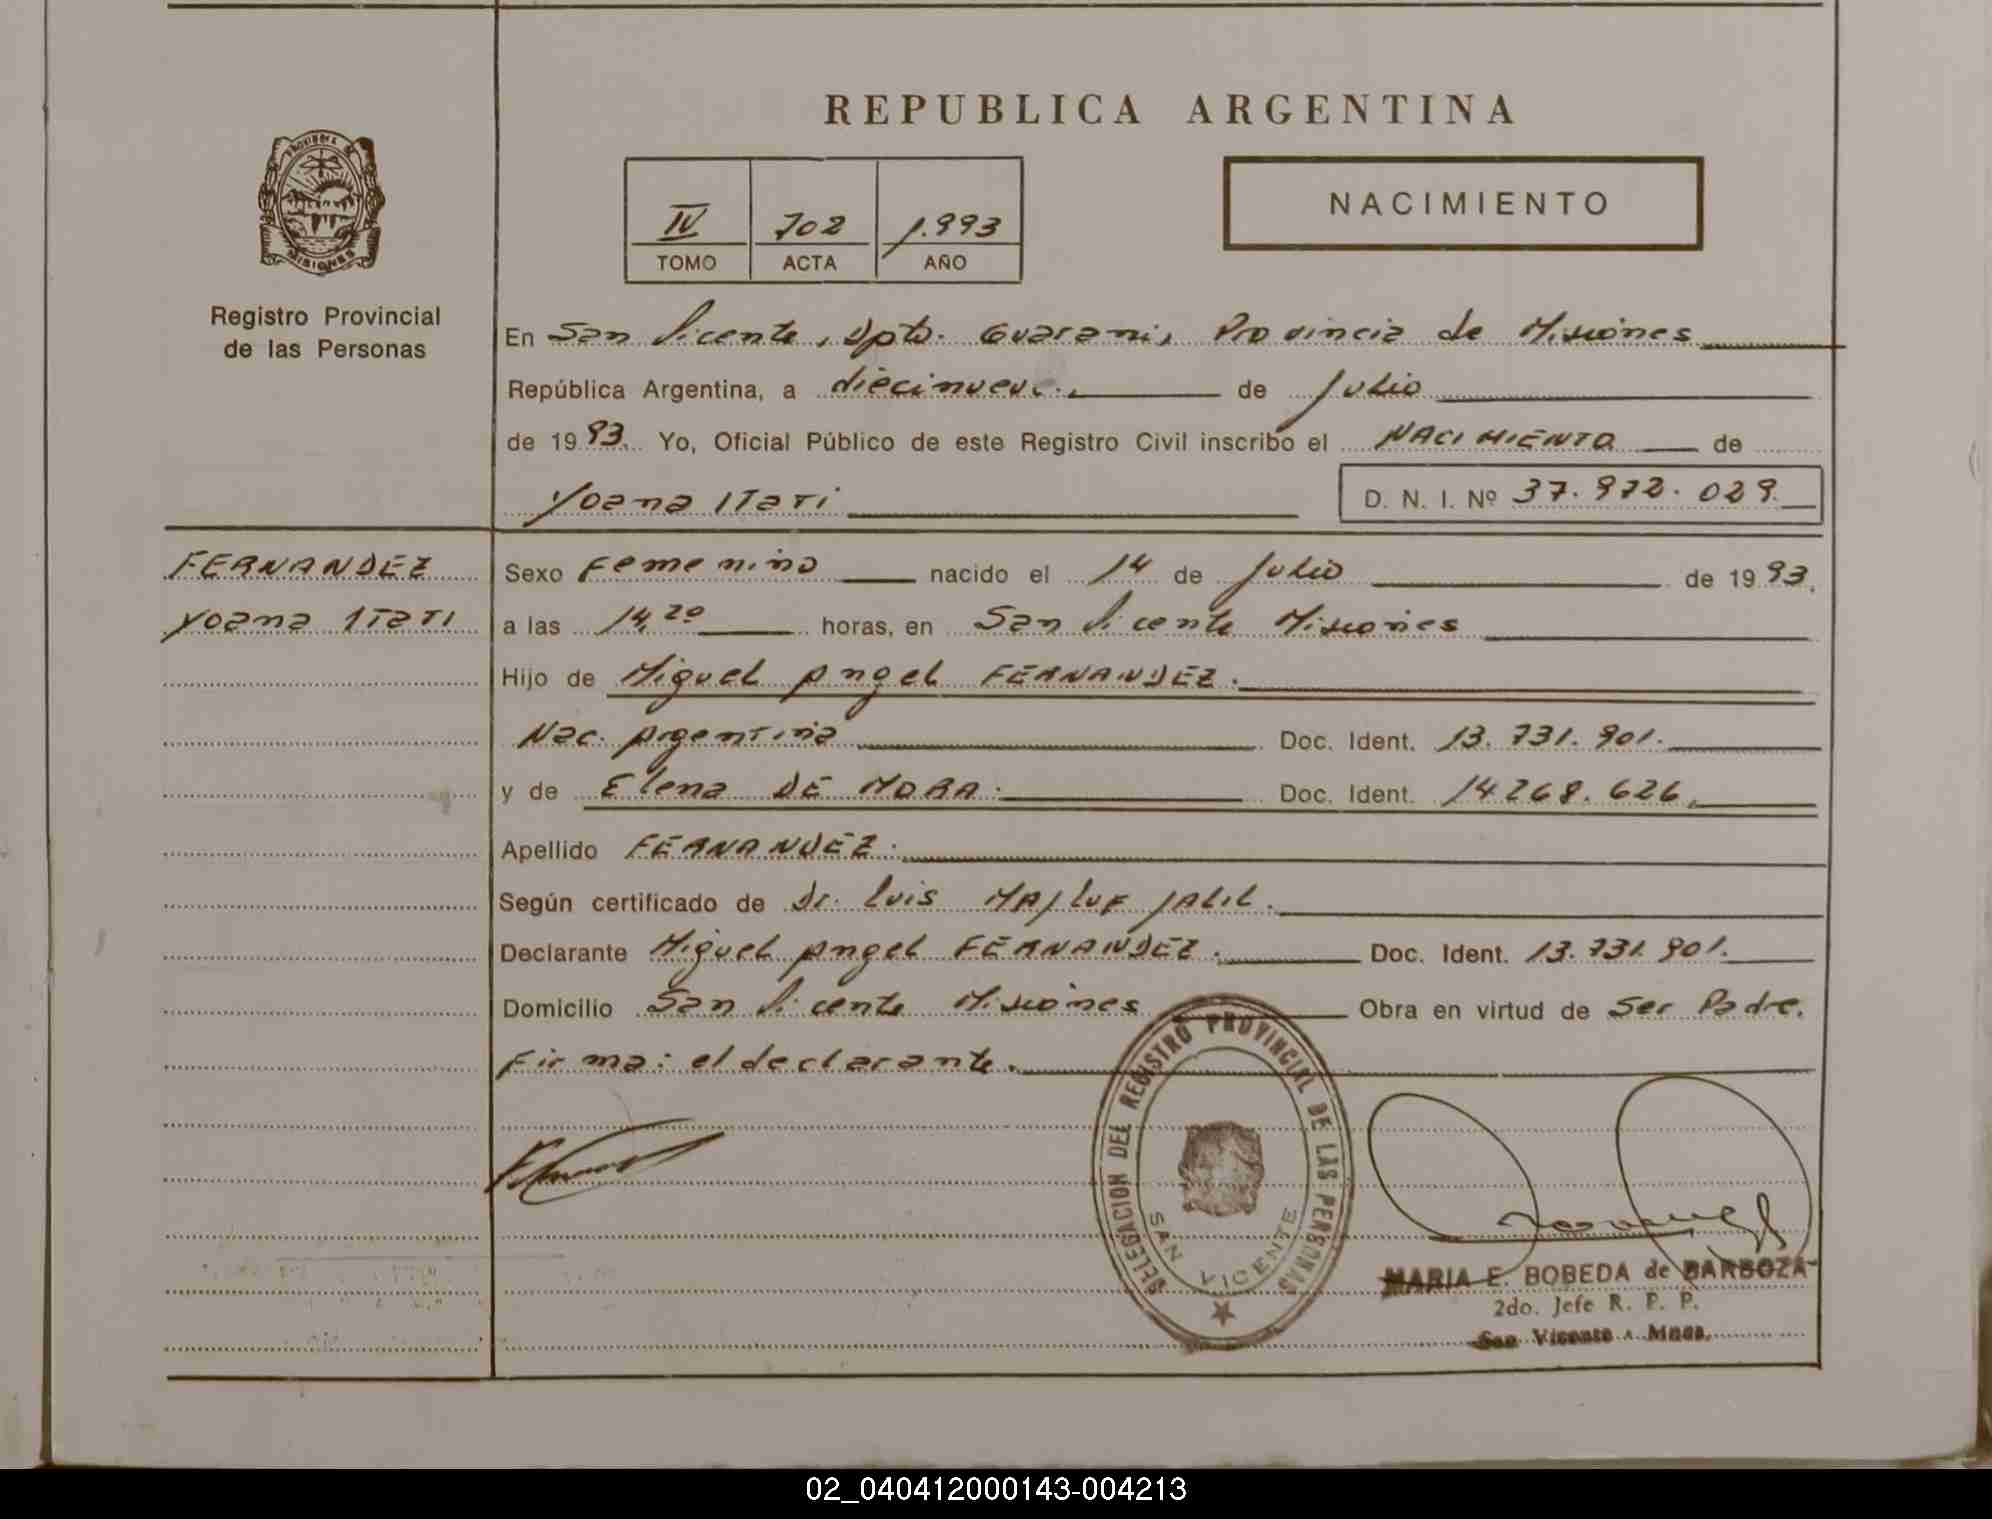 REPUBLICA ARGENTINA
PROVINCIA DE
MISIONES
Registro Provincial
de las Personas
IV 702 1.993
TOMO ACTA AÑO
NACIMIENTO
En San Vicente, Dpto. Guarani, Provincia de Misiones
República Argentina, a diecinueve. de Julio
de 1993. Yo, Oficial Público de este Registro Civil inscribo el NACIMIENTO de
Yoana ITaTi D. N. I. Nº 37.972.029.
FERNANDEZ
Yoana ITaTI
Sexo Femenino nacido el 14 de Julio de 1993.
a las 14,20 horas, en San Vicente Misiones
Hijo de Miguel Angel FERNANDEZ.
Nac. Argentina Doc. Ident. 13.731.901.
y de Elena DE MORA. Doc. Ident. 14.268.626.
Apellido FERNANDEZ.
Según certificado de Dr. Luis MAJLUF JALIL.
Declarante Miguel Angel FERNANDEZ. Doc. Ident. 13.731.901.
Domicilio San Vicente Misiones Obra en virtud de Ser Padre.
Firma: el declarante.
DELEGACION DEL REGISTRO PROVINCIAL DE LAS PERSONAS
SAN VICENTE
MARIA E. BOBEDA de BARBOZA
2do. Jefe R. P. P.
San Vicente - Mnes.
02_040412000143-004213